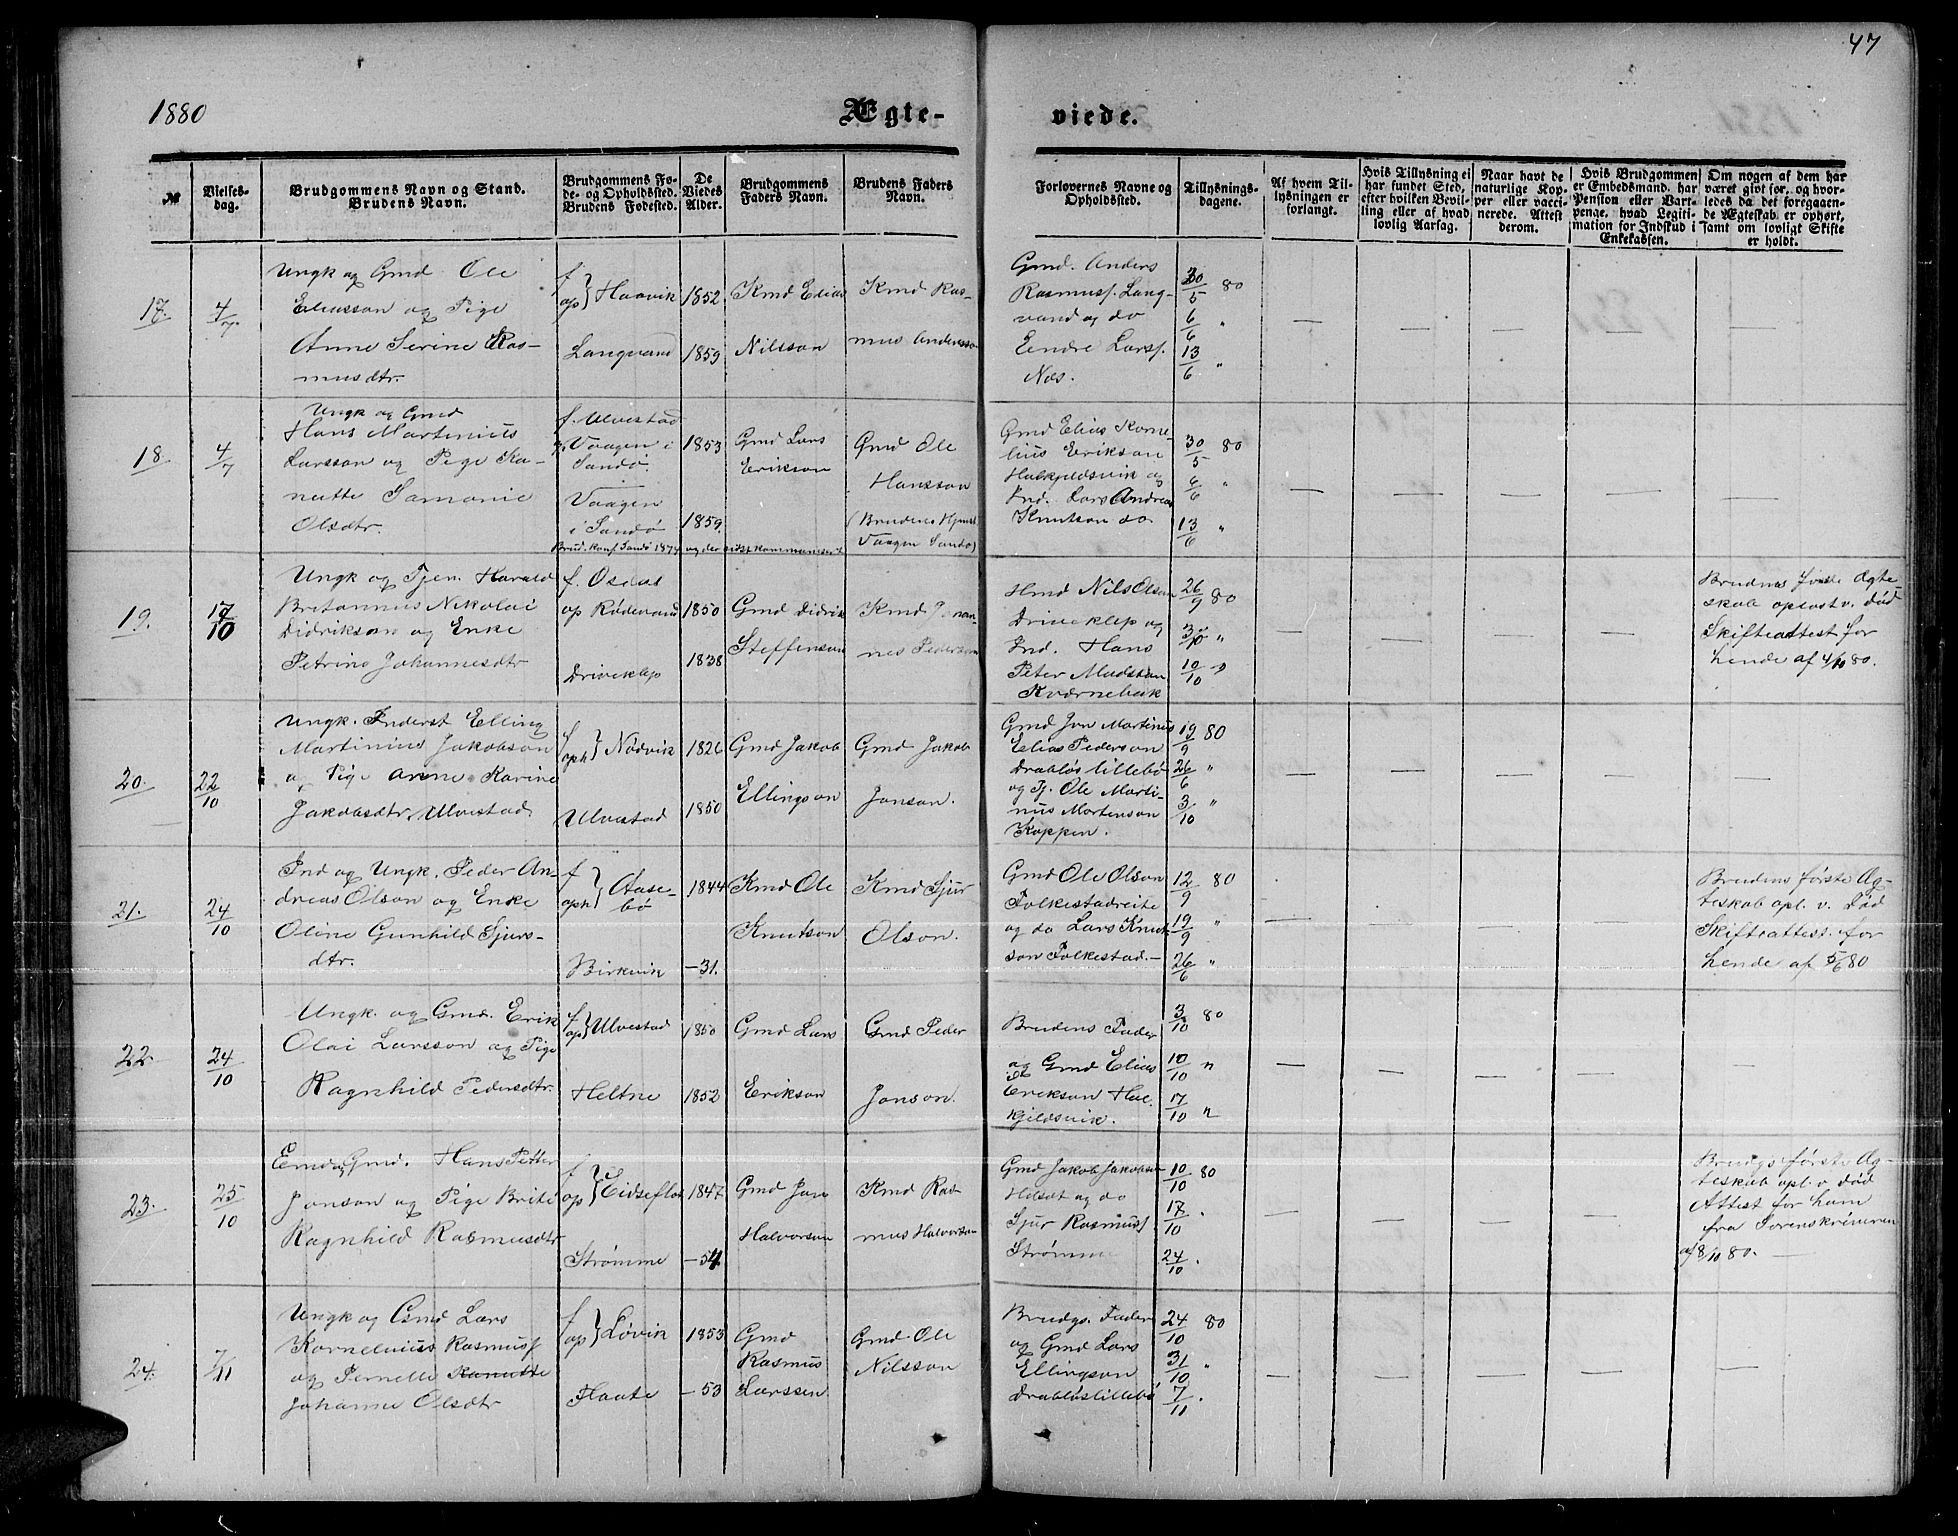 47
1880
Ægte-
viede.
№
Vielses-
dag.
Brudgommens Navn og Stand.
Brudens Navn.
Brudgommens Fø-
de- og Opholdssted.
Brudens Fødested.
De
Viedes
Alder.
Brudgommens
Faders Navn.
Brudens Faders
Navn.
Forlovernes Navne og
Opholdssted.
Tillysnings-
dagene.
Af hvem Til-
lysningen er
forlangt.
Hvis Tillysning ei
har fundet Sted,
efter hvilken Bevil-
ling eller af hvad
lovlig Aarsag.
Naar havt de
naturlige Kop-
per eller vacci-
nerede. Attest
derom.
Hvis Brudgommen
er Embedsmand, har
Pension eller Vart-
penge, hvad Legiti-
mation for Indskud i
Enkekassen.
Om nogen af dem har
været givt før, og hvor-
ledes da det foregaaen-
de Ægteskab er ophørt,
samt om lovligt Skifte
er holdt.
17.
4/7.
Ungk og Gmd Ole
Eliasson og Pige
Anne Serine Ras-
musdtr.
f
op } Haavik
Langvand
1852
1859
Kmd Elias
Nilsson
Kmd Ras-
mus Andersson
Gmd. Anders
Rasmusf. Lang-
vand og do
Eendre Larsf.
Næs.
30/5 80
6/6 "
13/6 "
18.
4/7
Ungk og Gmd
Hans Martinius
Larsson og Pige Ka-
nutte Samonie
Olsdtr.
f. Ulvestad
op Vaagen i
Sandø.
Vaagen
i Sandø
Brud. konf. Sandø 1874 og der sidst kommuniseret
1853
1859.
Gmd Lars
Erikson
Gmd Ole
Hansson
(Brudens Hjemst
Vaagen Sandø)
Gmd Elias Korne-
lius Erikson
Halkjeldsvik og
Ind. Lars Andreas
Knutson do
30/5 80
6/6 "
13/6 "
19.
17/10
Ungk og Tjen. Harald
Britannus Nikolai
Didrikson og Enke
Petrine Johannesdtr
f. Osdas
op Rødevand
Driveklep
1850
1838
Gmd Didrik
Steffenson
Kmd Johan-
nes Pederson
Hmd Nils Olson
Driveklep og
Ind. Hans
Peter Madsson
Kværnebak
26/9 80
3/10 "
10/10 "
Brudens første Ægte-
skab opløst v. Død
Skifteattest for
hende af 4/10 80.
20.
22/10
Ungk. Inderst Elling
Martinius Jakobson
og Pige Anne Karine
Jakobsdtr, Ulvestad
f
oph } Nødvik
Ulvestad
1826
1850
Gmd Jakob
Ellingson
Gmd Jakob
Jonson.
Gmd Jon Martinus
Elias Pederson
Drabløs lillebø
og Tj. Ole Marti-
nus Mortenson
Koppen.
19/9 80
26/6 "
3/10 "
21.
24/10
Ind og Ungk. Peder An-
dreas Olson og Enke
Oline Gunhild Sjurs-
dtr.
f
oph } Aase-
bø
Birkvik
1844
—31.
Kmd Ole
Knutson
Kmd Sjur
Olson.
Gmd Ole Olson
Folkestadreite
og do Lars Knut-
son Folkestad.—
12/9 80
19/9 "
26/6 "
Brudens første Æg-
teskab opl. v. Død
Skifteattest for
hende af 5/6 80
22.
24/10
Ungk. og Gmd. Erik
Olai Larsson og Pige
Ragnhild Pedersdtr.
f
op } Ulvestad
Heltne
1850
1852
Gmd Lars
Erikson
Gmd Peder
Jonson.
Brudens Fader
og Gmd Elias
Erikson Hal-
kjeldsvik.
3/10 80
10/10 "
17/10 "
23.
25/10
Emd og Gmd. Hans Petter
Jonson og Pige Brite
Ragnhild Rasmusdtr
f
op } Eidseflot
Strømme
1847
—54
Gmd Jon
Halvorson
Kmd Ras-
mus Halvorson
Gmd Jakob Jakobsen
Hilset og do
Sjur Rasmusf
Strømme
10/10 80
17/10 "
24/10 "
Brudgs første Æg-
teskab opl. v Død
Attest for ham
fra Sorenskriveren
af 8/10 80.
24.
7/11
Ungk og Gmd Lars
Kornelius Rasmusf
og Pernelle Kanutte
Johanne Olsdtr
f
op } Løvik
Flaate
1853
—53
Gmd
Rasmus
Larssen
Gmd Ole
Nilsson
Brudgs. Fader
og Gmd Lars
Ellingson
Drabløslillebø
24/10 80
31/10 "
7/11 "